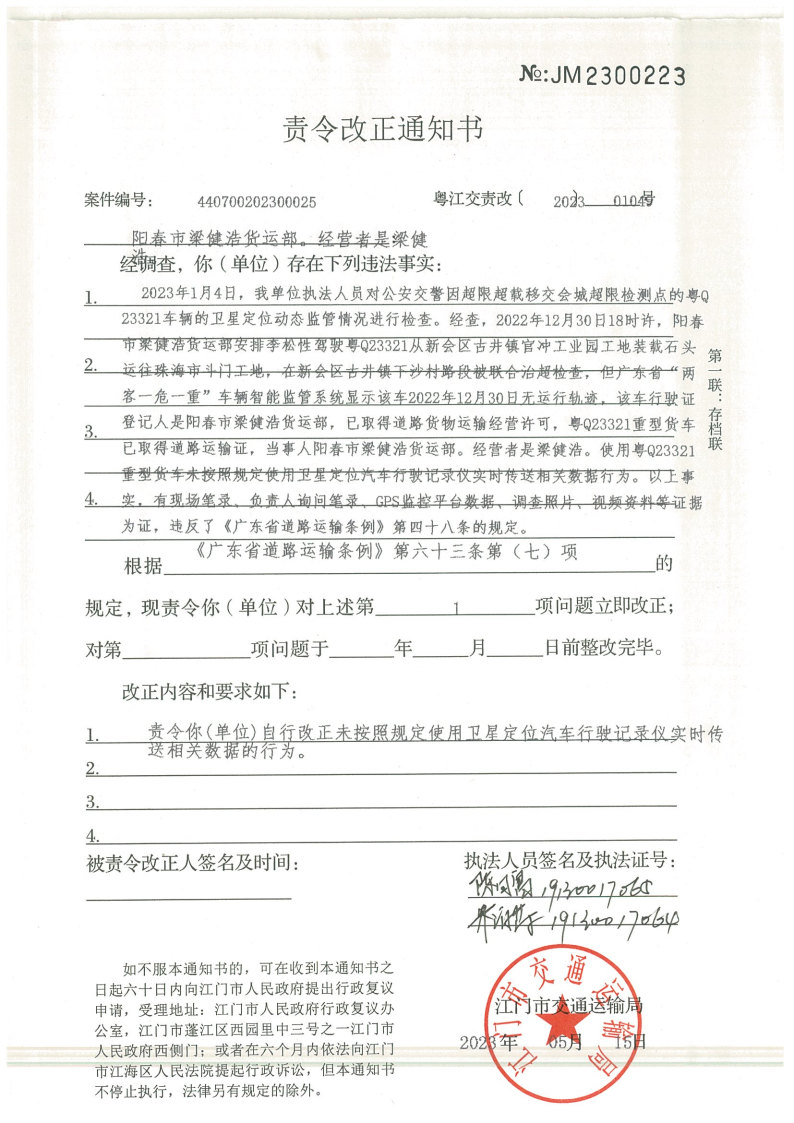 №:JM2300223
责令改正通知书
案件编号: 440700202300025 粤江交责改〔 2023 〕 01049号
阳春市梁健浩货运部。经营者是梁健
浩:
经调查,你(单位)存在下列违法事实:
1. 2023年1月4日,我单位执法人员对公安交警因超限超载移交会城超限检测点的粤Q
23321车辆的卫星定位动态监管情况进行检查。经查,2022年12月30日18时许,阳春
市梁健浩货运部安排李松性驾驶粤Q23321从新会区古井镇官冲工业园工地装载石头
2. 运往珠海市斗门工地,在新会区古井镇下沙村路段被联合治超检查,但广东省“两
客一危一重”车辆智能监管系统显示该车2022年12月30日无运行轨迹,该车行驶证
3. 登记人是阳春市梁健浩货运部,已取得道路货物运输经营许可,粤Q23321重型货车
已取得道路运输证,当事人阳春市梁健浩货运部。经营者是梁健浩。使用粤Q23321
重型货车未按照规定使用卫星定位汽车行驶记录仪实时传送相关数据行为。以上事
4. 实,有现场笔录、负责人询问笔录、GPS监控平台数据、调查照片、视频资料等证据
为证,违反了《广东省道路运输条例》第四十八条的规定。
根据《广东省道路运输条例》第六十三条第(七)项的
规定,现责令你(单位)对上述第 1 项问题立即改正;
对第 项问题于 年 月 日前整改完毕。
改正内容和要求如下:
1. 责令你(单位)自行改正未按照规定使用卫星定位汽车行驶记录仪实时传
送相关数据的行为。
2.
3.
4.
第一联:存档联
被责令改正人签名及时间:
执法人员签名及执法证号:
19130017065
19130017064
如不服本通知书的,可在收到本通知书之
日起六十日内向江门市人民政府提出行政复议
申请,受理地址:江门市人民政府行政复议办
公室,江门市蓬江区西园里中三号之一江门市
人民政府西侧门;或者在六个月内依法向江门
市江海区人民法院提起行政诉讼,但本通知书
不停止执行,法律另有规定的除外。
江门市交通运输局
江门市交通运输局
2023年 05月 15日